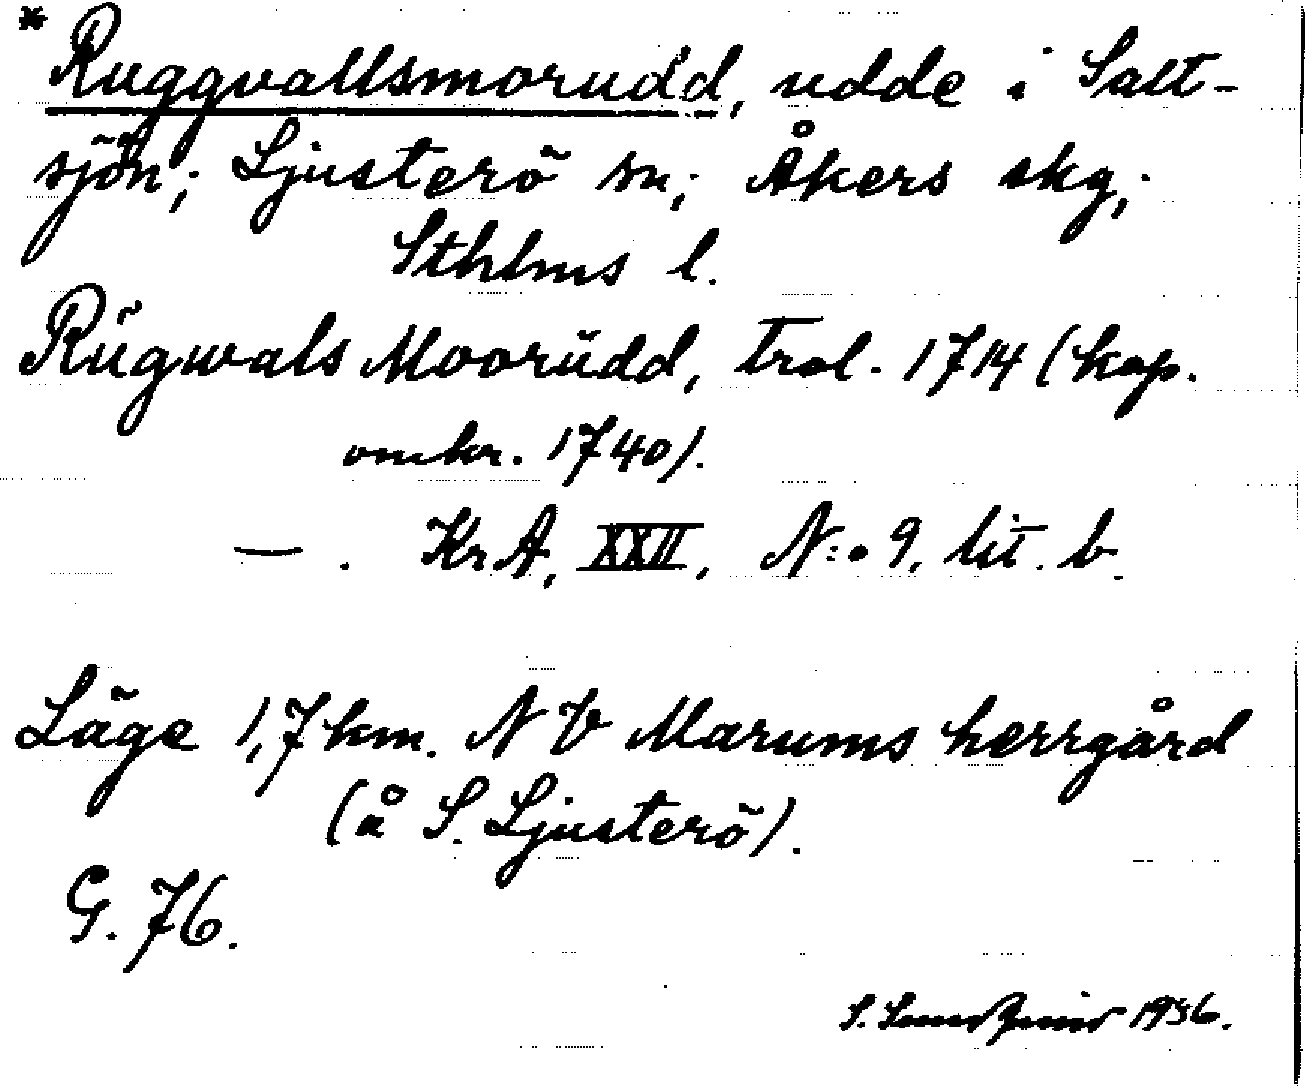 * Ruggvallsmorudd, udde i Salt-
sjön; Ljusterö sn; Åkers skg;
Sthlms l.
Rŭgwals Moorŭdd, trol. 1714 (kop.
omkr. 1740).
— . KrA, XXII, N:o 9, lit. b.
Läge 1,7 km. NV Marums herrgård
(å S. Ljusterö).
G. 76.
S. 1936.